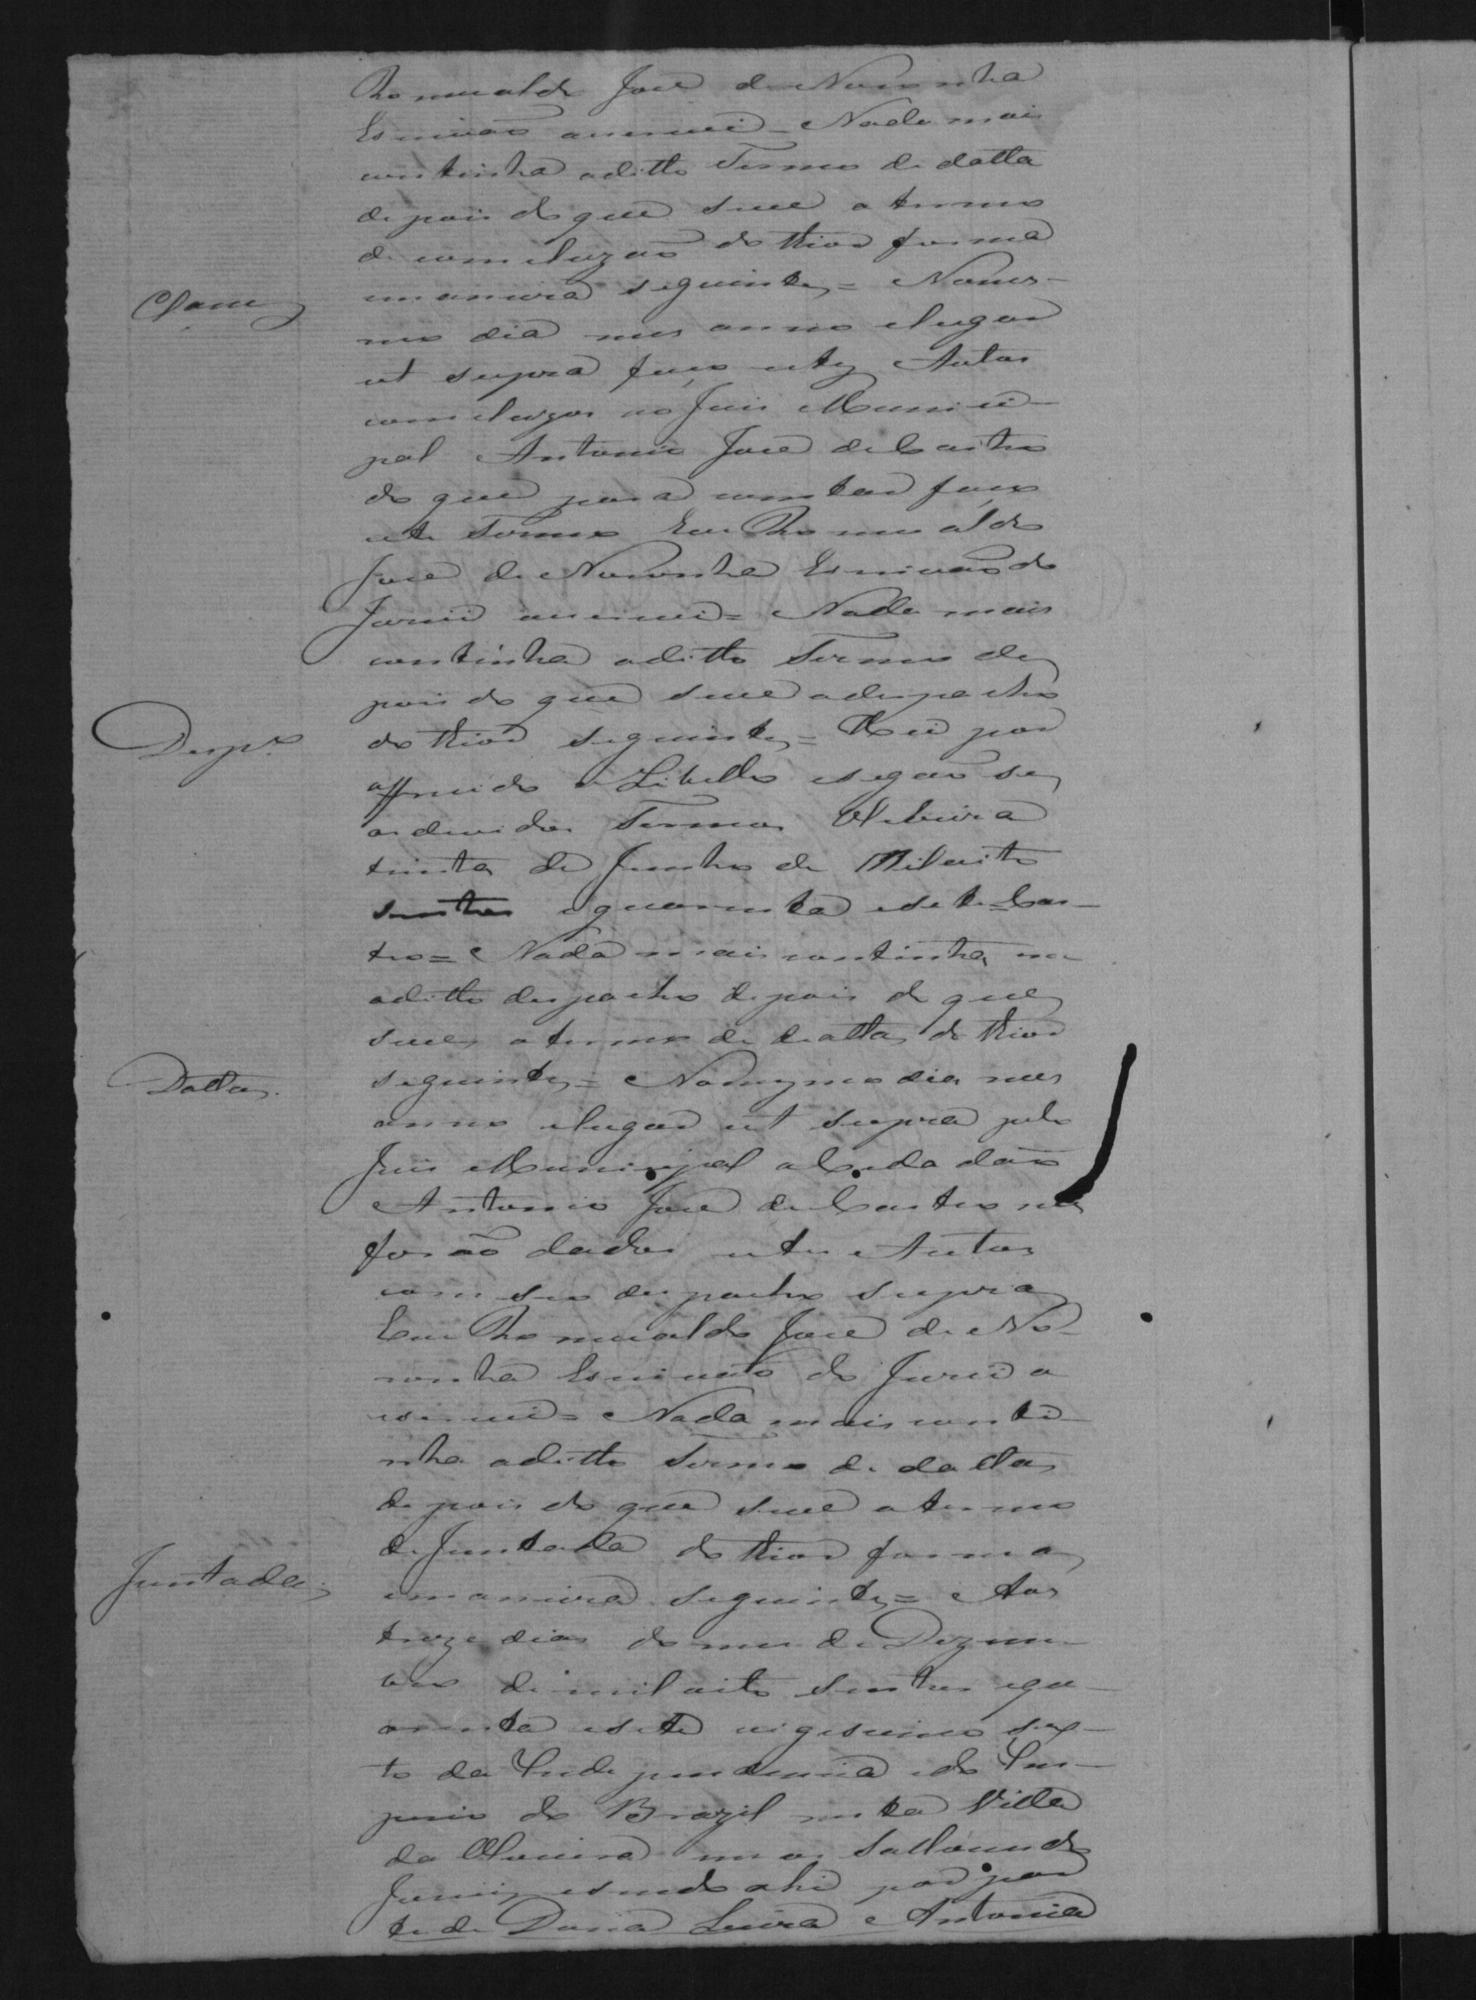 Romualdo José de Noronha
Escrivão o escrevi = Nada mais
continha o ditto Termo de datta
depois do que se ve o termo
de comcluzão do thior forma
Clam
e maneira seguinte = No mes-
mo dia mes anno e lugar
ut supra faço estes Autos
comcluzos ao Juis Munici-
pal Antonio José de Castro
do que para constar faço
este Termo Eu Romualdo
José de Noronha Escrivão do
Jurii o escrevi = Nada mais
continha o ditto Termo de
pois do que se ve o despacho
Desp.º
do thior seguinte = Hei por
offrecido o Libello e segão se
os devidos Termos Oliveira
trinta de Junho de Mil oito
sentos e quarenta e sete = Cas-
tro = Nada mais continha
o ditto despacho depois do que
se ve o termo de datta do thior
Datta
seguinte = No mesmo dia mes
anno e lugar ut supra pelo
Juis Municipal o Cidadão
Antonio José de Castro me
forão dados estes Autos
com seo despacho supra
Eu Romualdo José de No-
ronha Escrivão do Jurii o
escrevi = Nada mais conti-
nha o ditto Termo de datta
depois do que se ve o termo
de Juntada do thior forma
Juntada
e maneira seguinte = Aos
treze dias do mes de Dezem-
bro de mil oito sentos e qua-
renta e sete vigesimo sex-
to da Independencia e do Im-
perio do Brazil nesta Villa
da Oliveira
sendo ahi por par
te de Dona e Antonia